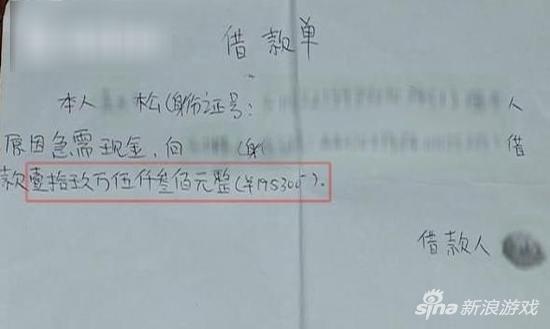 借款单
本人 松(身份证号: 人
原因急需现金,向 (身 借
款壹拾玖万伍仟叁佰元整(¥195300)。
借款人
sina 新浪游戏